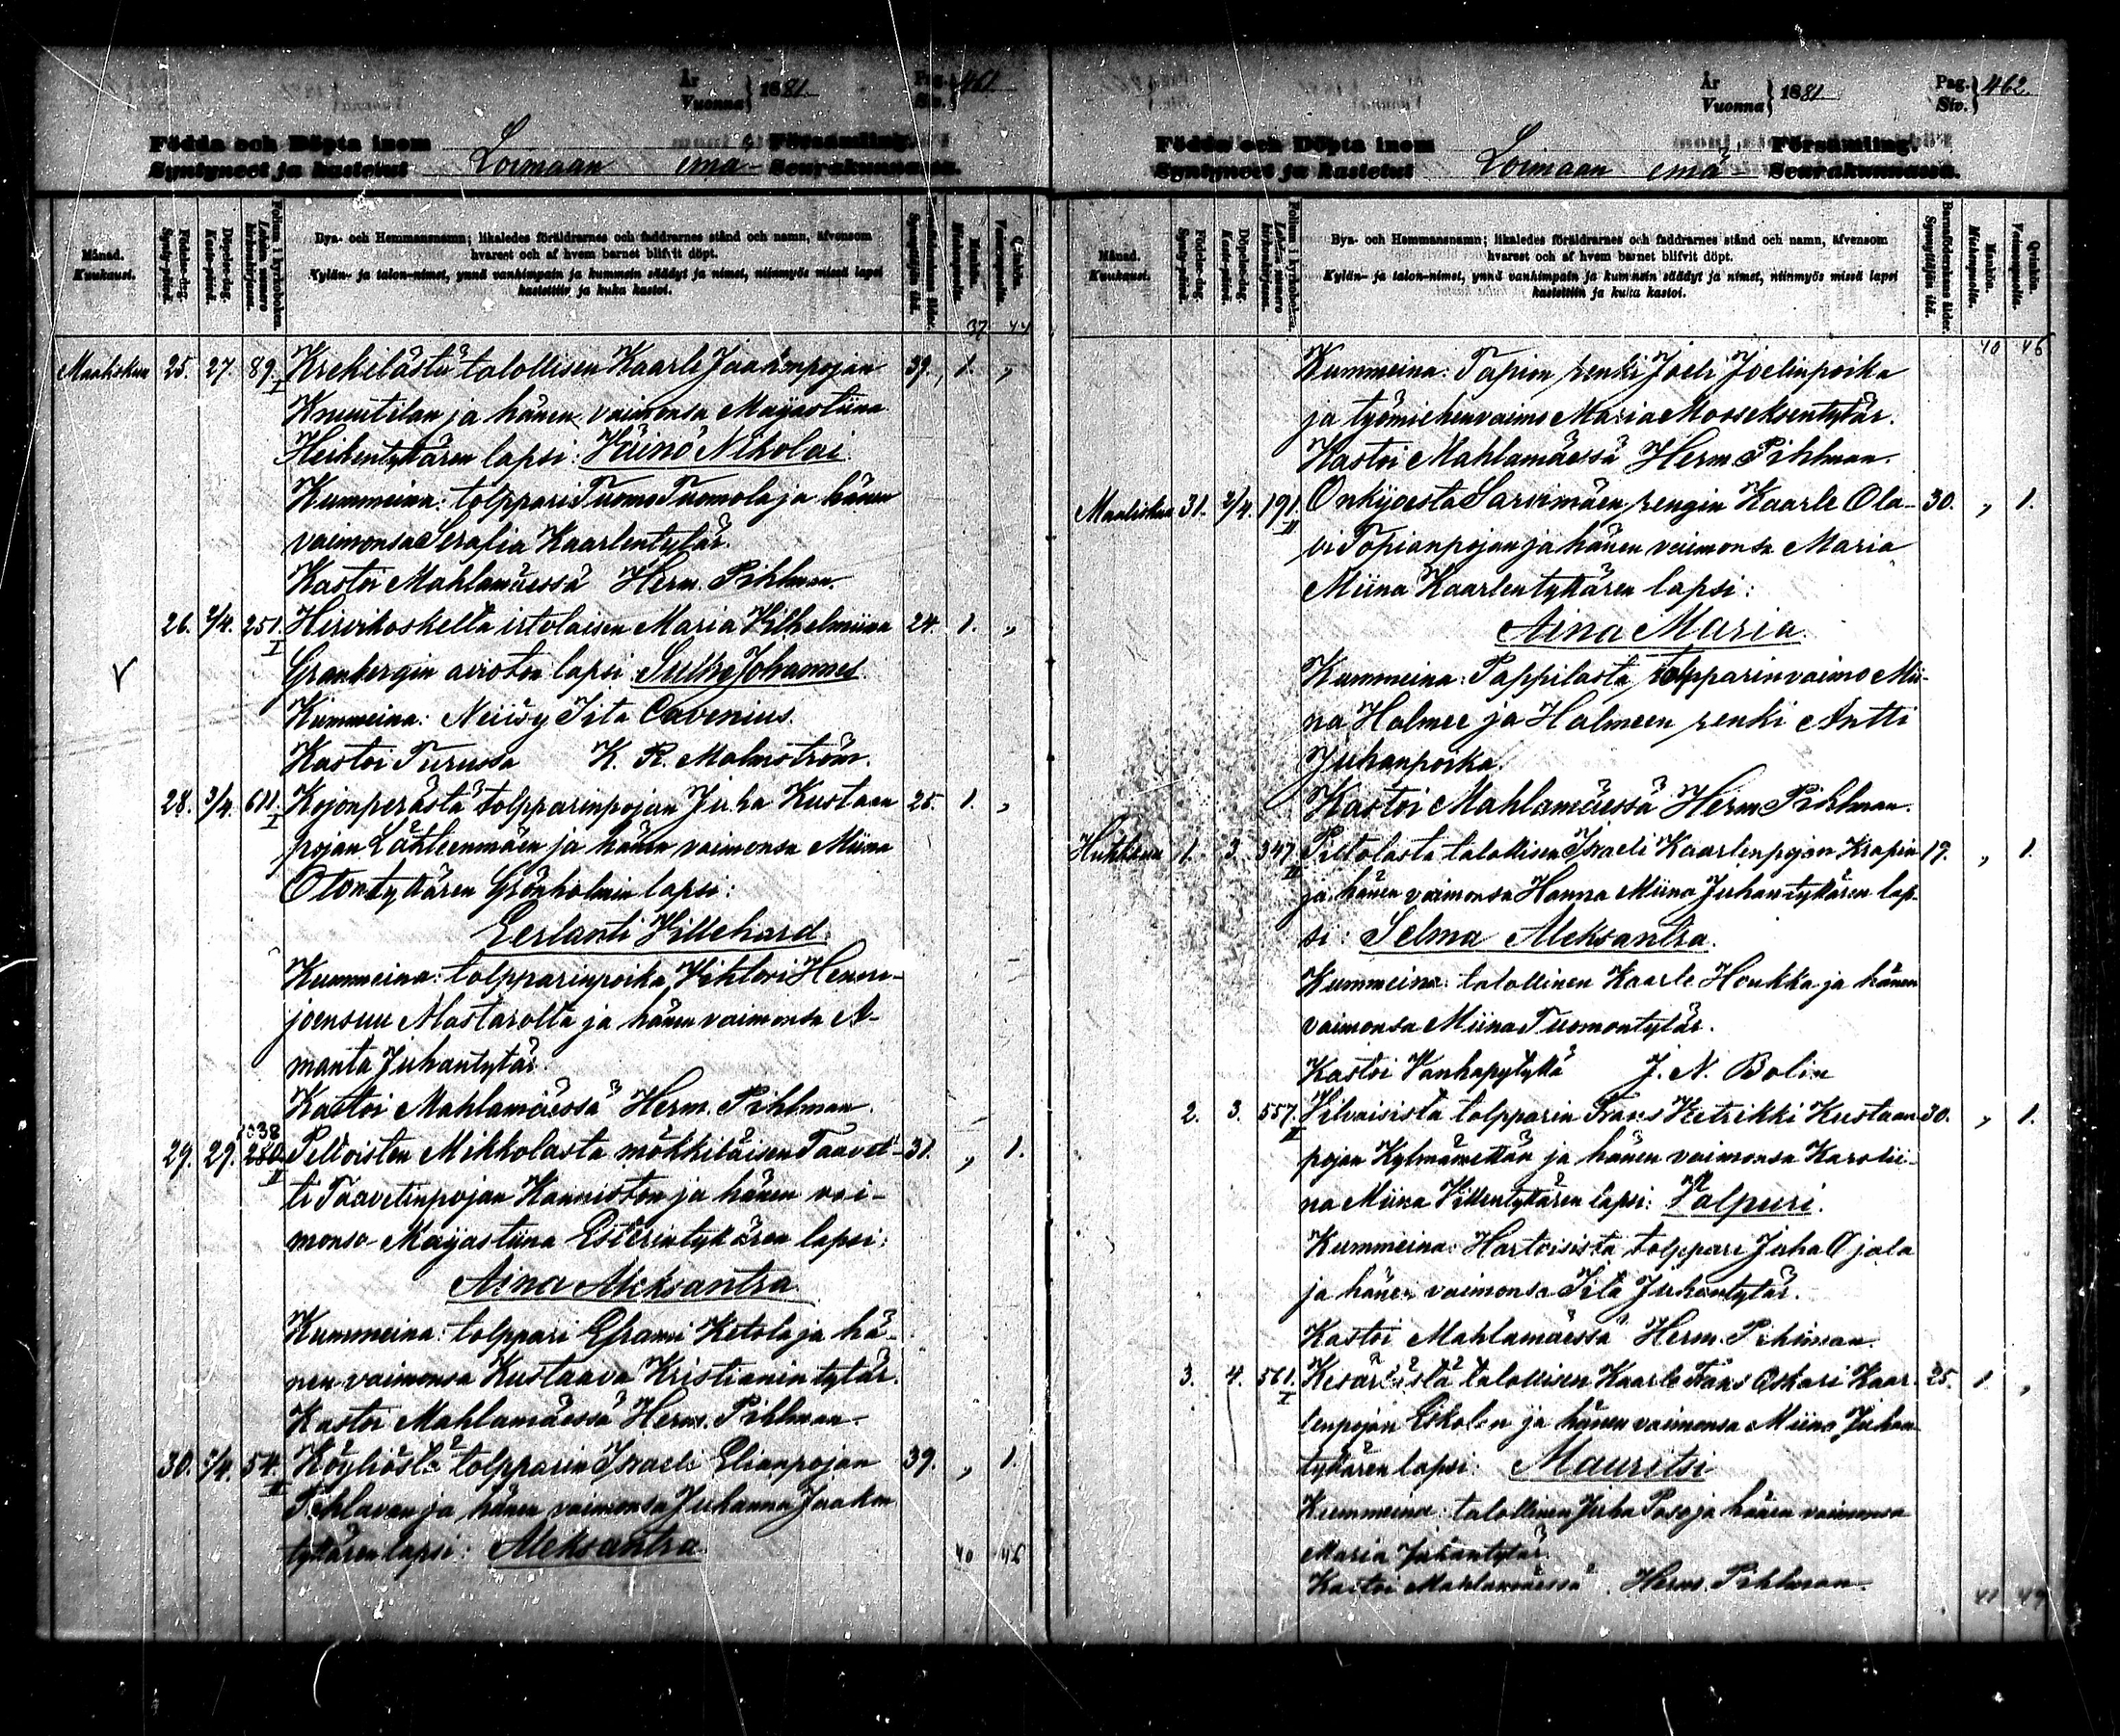 År
Vuonna } 1881. Pag.
Siv. } 461
Födda och Döpta inom Församling.
Syntyneet ja kastetut Loimaan emä- Seurakunnassa.
Månad.
Kuukausi.
Födelse-dag.
Synty-päivä.
Döpelse-dag.
Kaste-päivä.
Folium i kyrkoboken.
Lehden numero kirkonkirjassa.
Bya- och Hemmansnamn; likaledes föräldrarnes och faddrarnes stånd och namn, äfvensom
hvarest och af hvem barnet blifvit döpt.
Kylän- ja talon-nimet, ynnä vanhimpain ja kummein säädyt ja nimet, niinmyös missä lapsi
kastettiin ja kuka kastoi.
Barnföderskans ålder.
Synnyttäjän ikä.
Mankön.
Miehenpuolta.
Qvinkön.
Vaimonpuolta.
37 44
Maaliskuu 25. 27. 89. I Krekilästä talollisen Kaarle Jaakonpojan 39. 1. „
Knuutilan ja hänen vaimonsa Mayastiina
Heikintyttären lapsi: Väinö Nikolai.
Kummeina: tolppari Tuomo Tuomola ja hänen
vaimonsa Serafia Kaarlentytär.
Kastoi Mahlamäessä Herm. Pihlman.
26. 2/4. 251. I Hirvikoskelta irtolaisen Maria Vilhelmiina 24. 1. „
Granbergin avioton lapsi Sulho Johannes
Kummeina: Neiisy Iita Cavenius.
Kastoi Turussa K. R. Malmström.
28. 3/4. 611. I Kojonperästä tolpparinpojan Juha Kustaan 25. 1. „
pojan Lähteenmäen ja hänen vaimonsa Miina
Otontyttären Grönholmin lapsi:
Eerlanti Villehard.
Kummeina: tolpparinpoika Vihtori Henri-
joensuu Alastarolta ja hänen vaimonsa A-
manta Juhantytär.
Kastoi Mahlamäessä Herm. Pihlman.
1038
29. 29. 280. II Peltoisten Mikkolasta mökkiläisen Taavet- 31. „ 1.
ti Taavetinpojan Kanniston ja hänen vai-
monsa Mayastiina Esterintyttären lapsi:
Aina Aleksantra.
Kummeina: tolppari Eframi Ketola ja hä-
nen vaimonsa Kustaava Kristianin tytär.
Kastoi Mahlamäessä Herm. Pihlman.
30. 5/4. 54. II Köyliöstä tolpparin Israeli Elianpojan 39. „ 1.
Pihlavan ja hänen vaimonsa Juhanna Jaakon
tyttären lapsi: Aleksantra. 40 46
År
Vuonna } 1881 Pag.
Siv. } 462.
Födda och Döpta inom Församling.
Syntyneet ja kastetut Loimaan emä- Seurakunnassa.
Månad.
Kuukausi.
Födelse-dag.
Synty-päivä.
Döpelse-dag.
Kaste-päivä.
Folium i kyrkoboken.
Lehden numero kirkonkirjassa.
Bya- och Hemmansnamn; likaledes föräldrarnes och faddrarnes stånd och namn, äfvensom
hvarest och af hvem barnet blifvit döpt.
Kylän- ja talon-nimet, ynnä vanhimpain ja kummein säädyt ja nimet, niinmyös missä lapsi
kastettiin ja kuka kastoi.
Barnföderskans ålder.
Synnyttäjän ikä.
Mankön.
Miehenpuolta.
Qvinkön.
Vaimonpuolta.
40 46
Kummeina: Tapion renki Joeli Joelinpoika
ja työmiehenvaimo Maria Mooseksentytär.
Kastoi Mahlamäessä Herm. Pihlman.
Maaliskuu 31. 2/4. 191. II Onkijoesta Sarvimäen rengin Kaarle Ola- 30. „ 1.
vi Topianpojan ja hänen vaimonsa Maria
Miina Kaarlentyttären lapsi:
Aina Maria.
Kummeina: Pappilasta tolpparinvaimo Mii-
na Halmee ja Halmeen renki Antti
Juhanpoika.
Kastoi Mahlamäessä Herm. Pihlman.
Huhtikuu 1. 3. 347. II Piltolasta talollisen Israeli Kaarlenpojan Krapin 19. „ 1.
ja hänen vaimonsa Hanna Miina Juhantyttären lap-
si: Selma Aleksantra.
Kummeina: talollinen Kaarle Houkka ja hänen
vaimonsa Miina Tuomontytär.
Kastoi Vanhapytyllä J. N. Bolin
2. 3. 557. II Vilvaisista tolpparin Frans Vetrikki Kustaan 30. „ 1.
pojan Kylmämettän ja hänen vaimonsa Karolii-
na Miina Villentyttären lapsi: Valpuri.
Kummeina: Hartoisista tolppari Juha Ojala
ja hänen vaimonsa Iita Juhantytär.
Kastoi Mahlamäessä Herm. Pihlman.
3. 4. 561. I talollisen Kaarle Frans Oskari Kaar- 25. 1. „
lenpojan Eskolan ja hänen vaimonsa Miina Juhan
tyttären lapsi: Mauritsi
Kummeina: talollinen Juha Paso ja hänen vaimonsa
Maria Juhantytär.
Kastoi Mahlamäessä Herm. Pihlman. 41 49